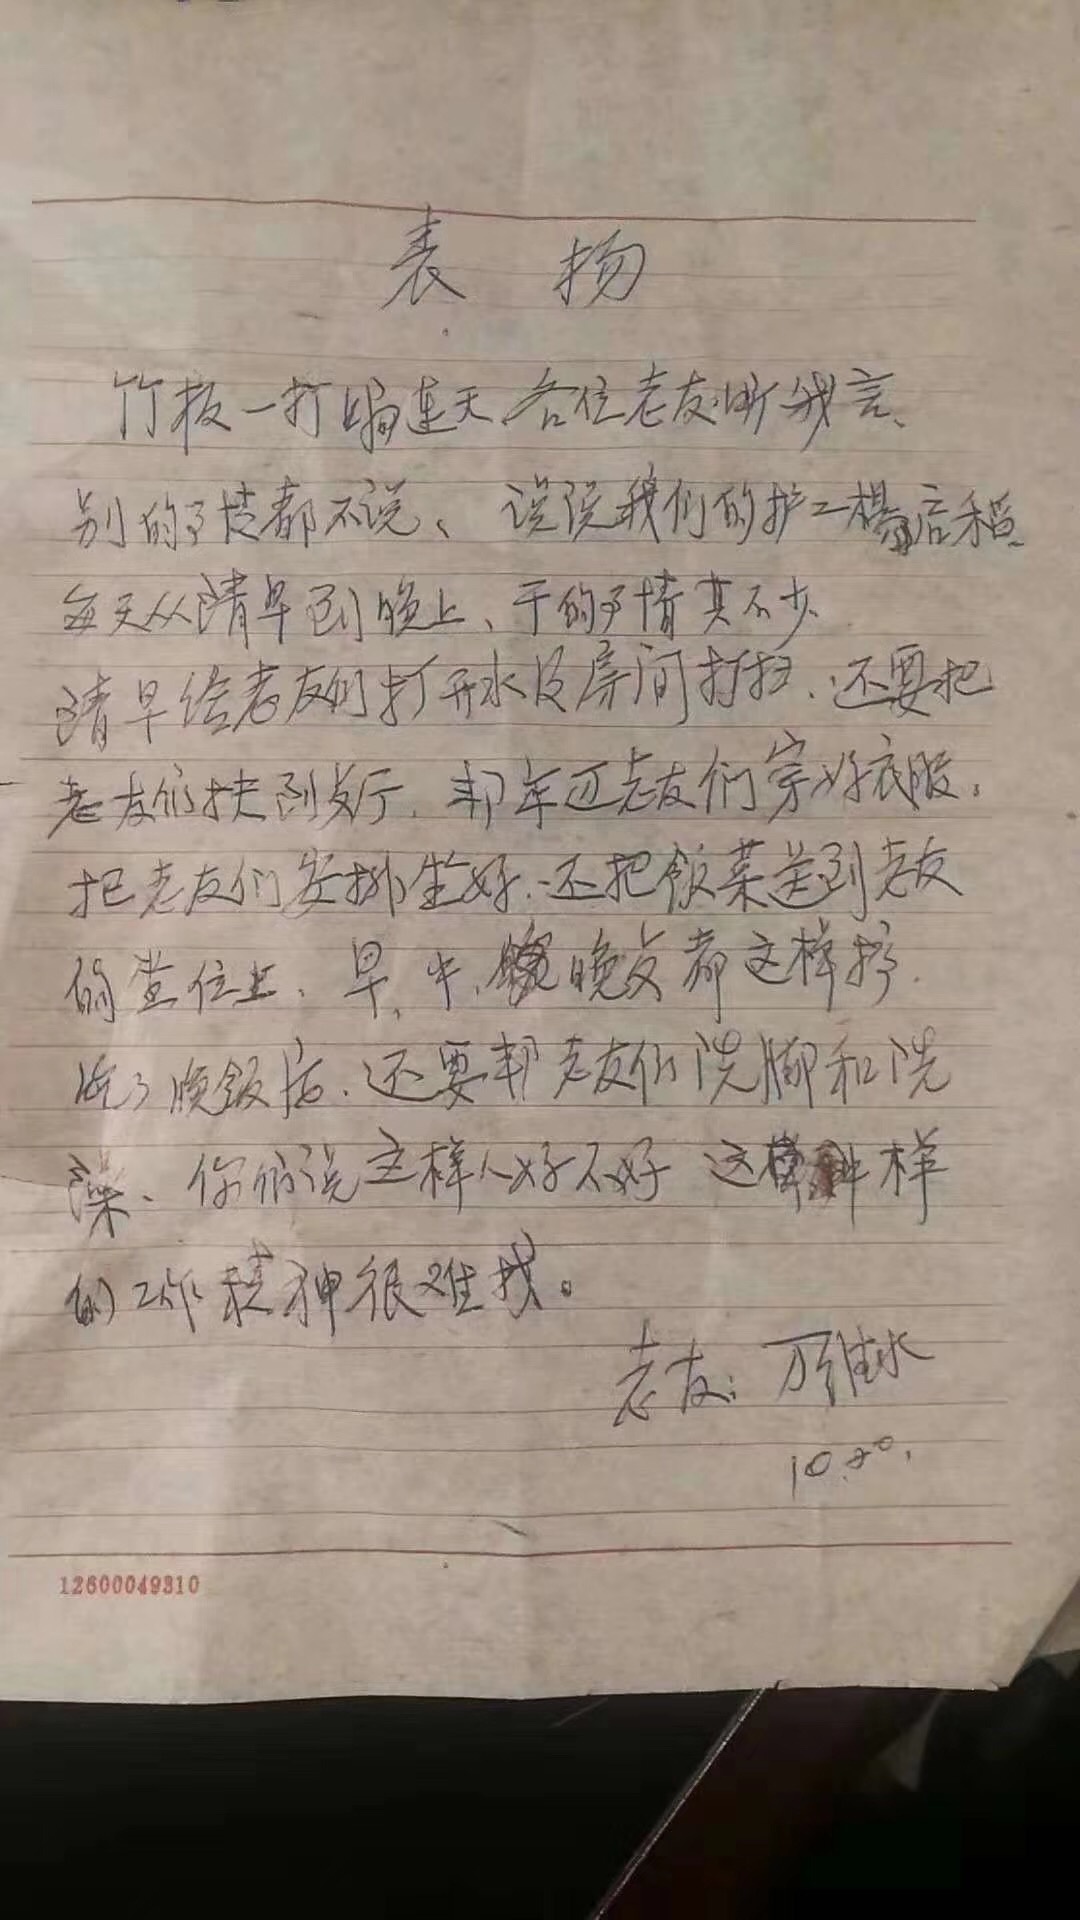 表 扬
竹板一打响连天、各位老友听我言、
别的事情都不说、说说我们的护工杨后稻、
每天从清早到晚上、干的事情真不少、
清早给老友们打开水及房间打扫、还要把
老友们扶到发厅、帮年迈老友们穿好衣服、
把老友们安排坐好、还把饭菜送到老友
的坐位上、早、中、晚 都这样
吃了晚饭后、还要帮老友们洗脚和洗
澡、你们说这样人好不好 这样
的工作精神很难找。
老友：万维水
10.20.
12600049310